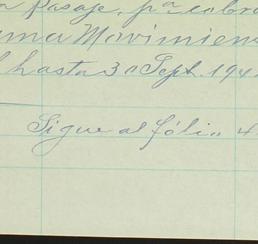 Pasaje, pª cobra
ma Movimien
hasta 30 Sept. 194
Sigue al fólio 4